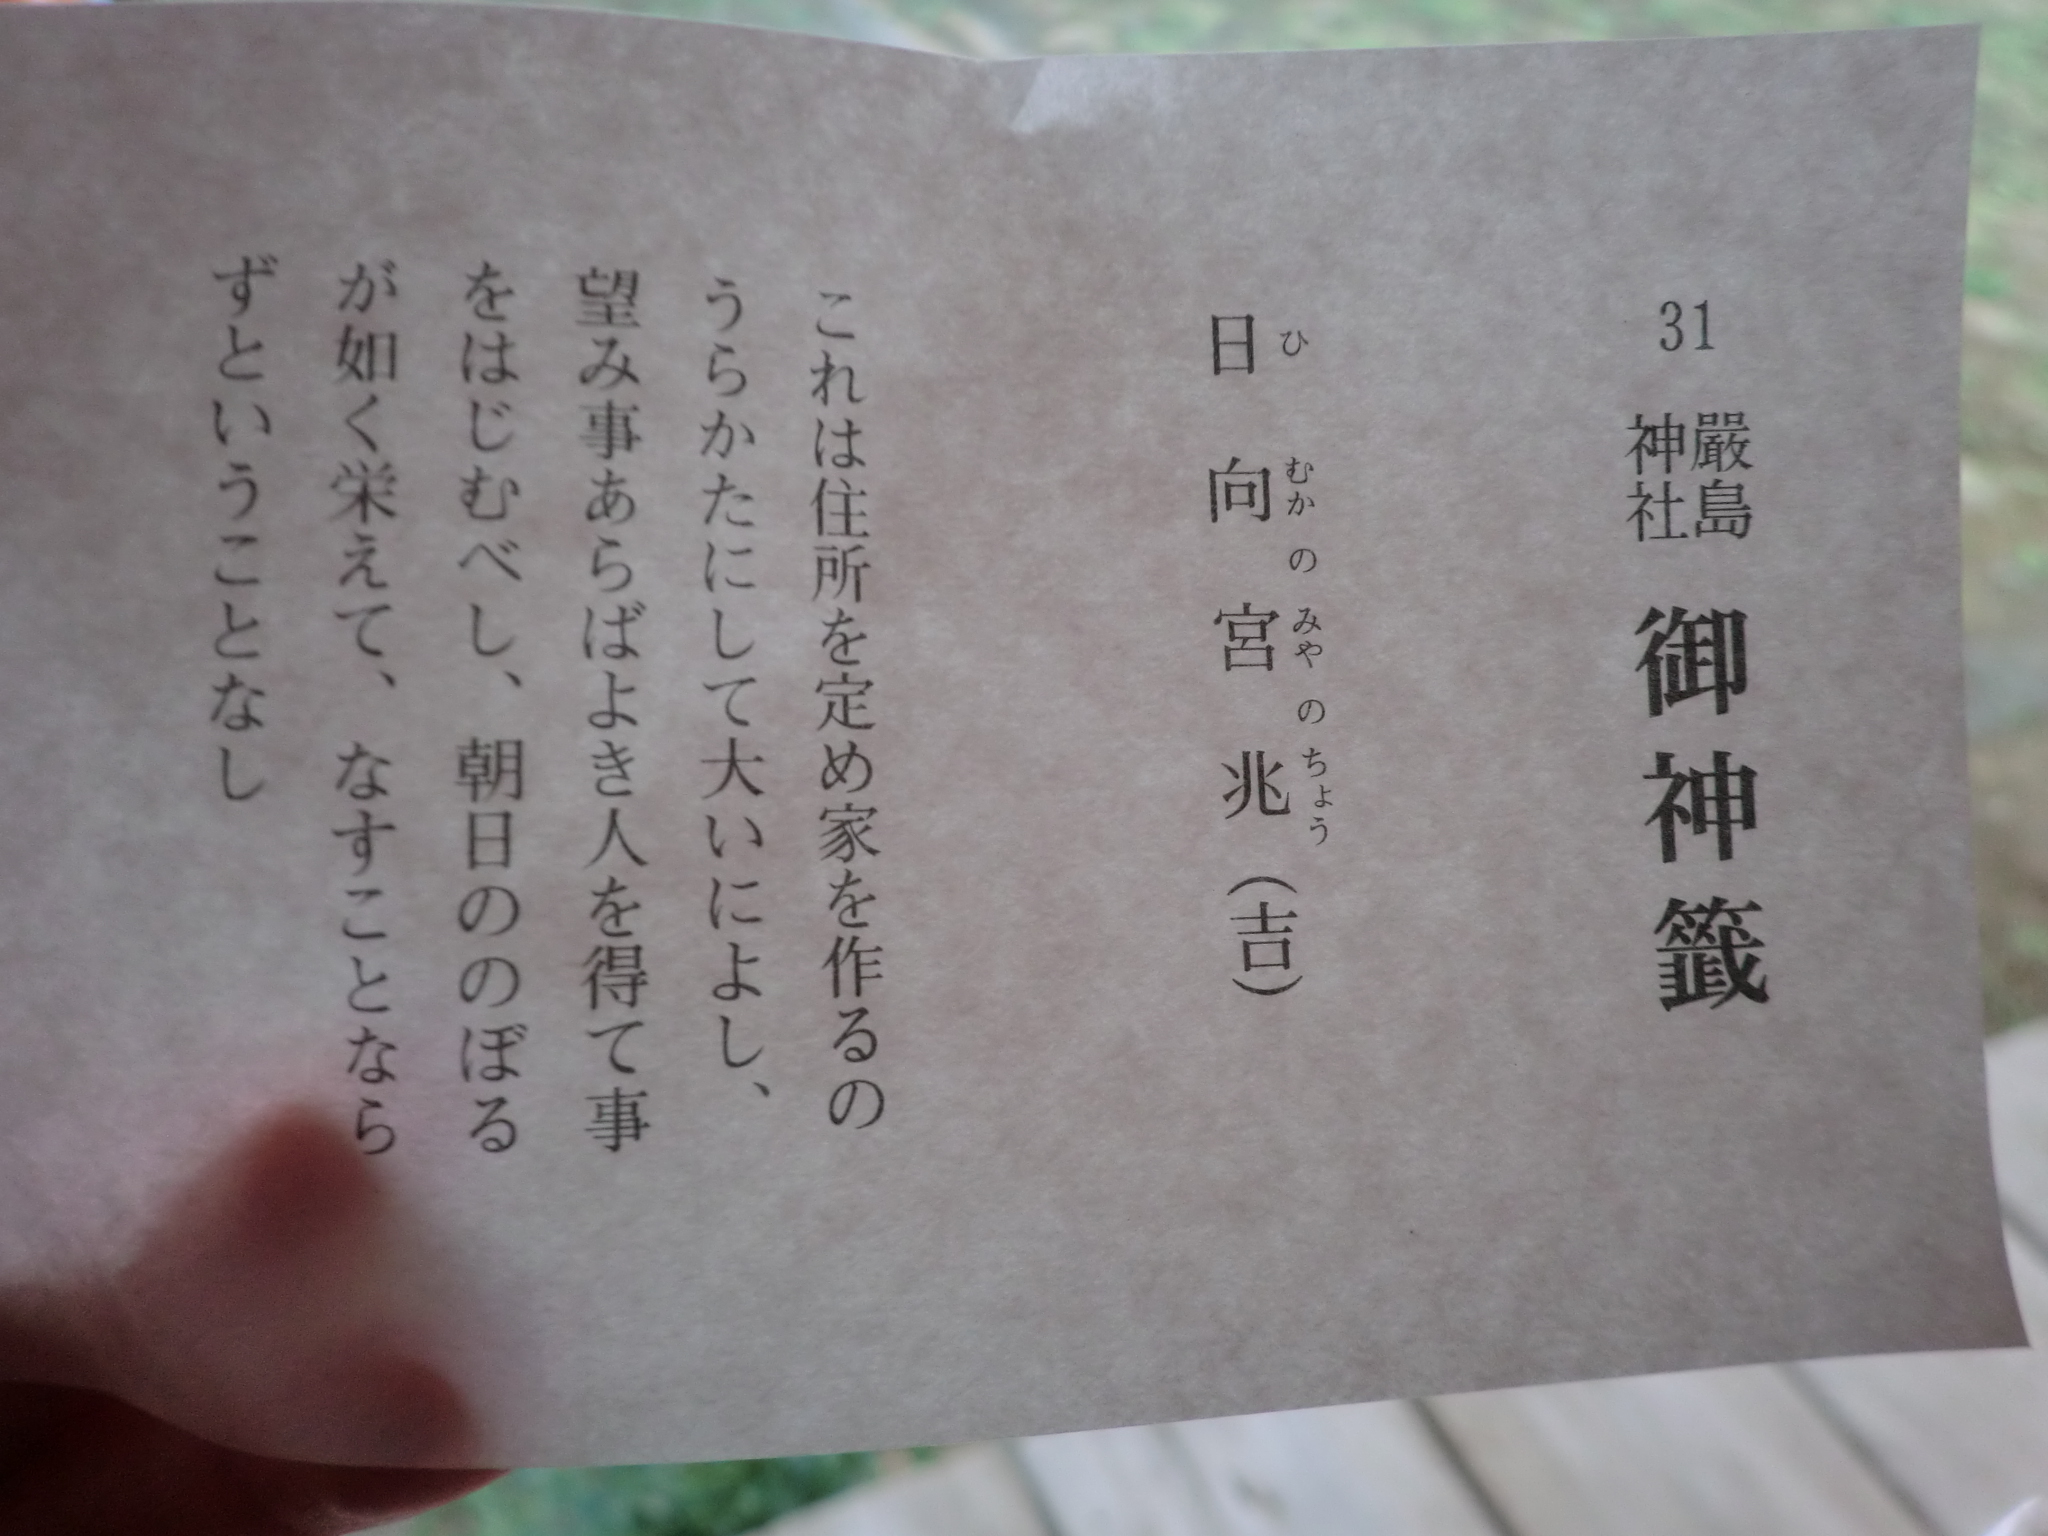 31 嚴島神社 御神籤
ひ むか の みや の ちょう
日向宮兆(吉)
これは住所を定め家を作るの
うらかたにして大いによし、
望み事あらばよき人を得て事
をはじむべし、朝日ののぼる
が如く栄えて、なすこととなら
ずということなし